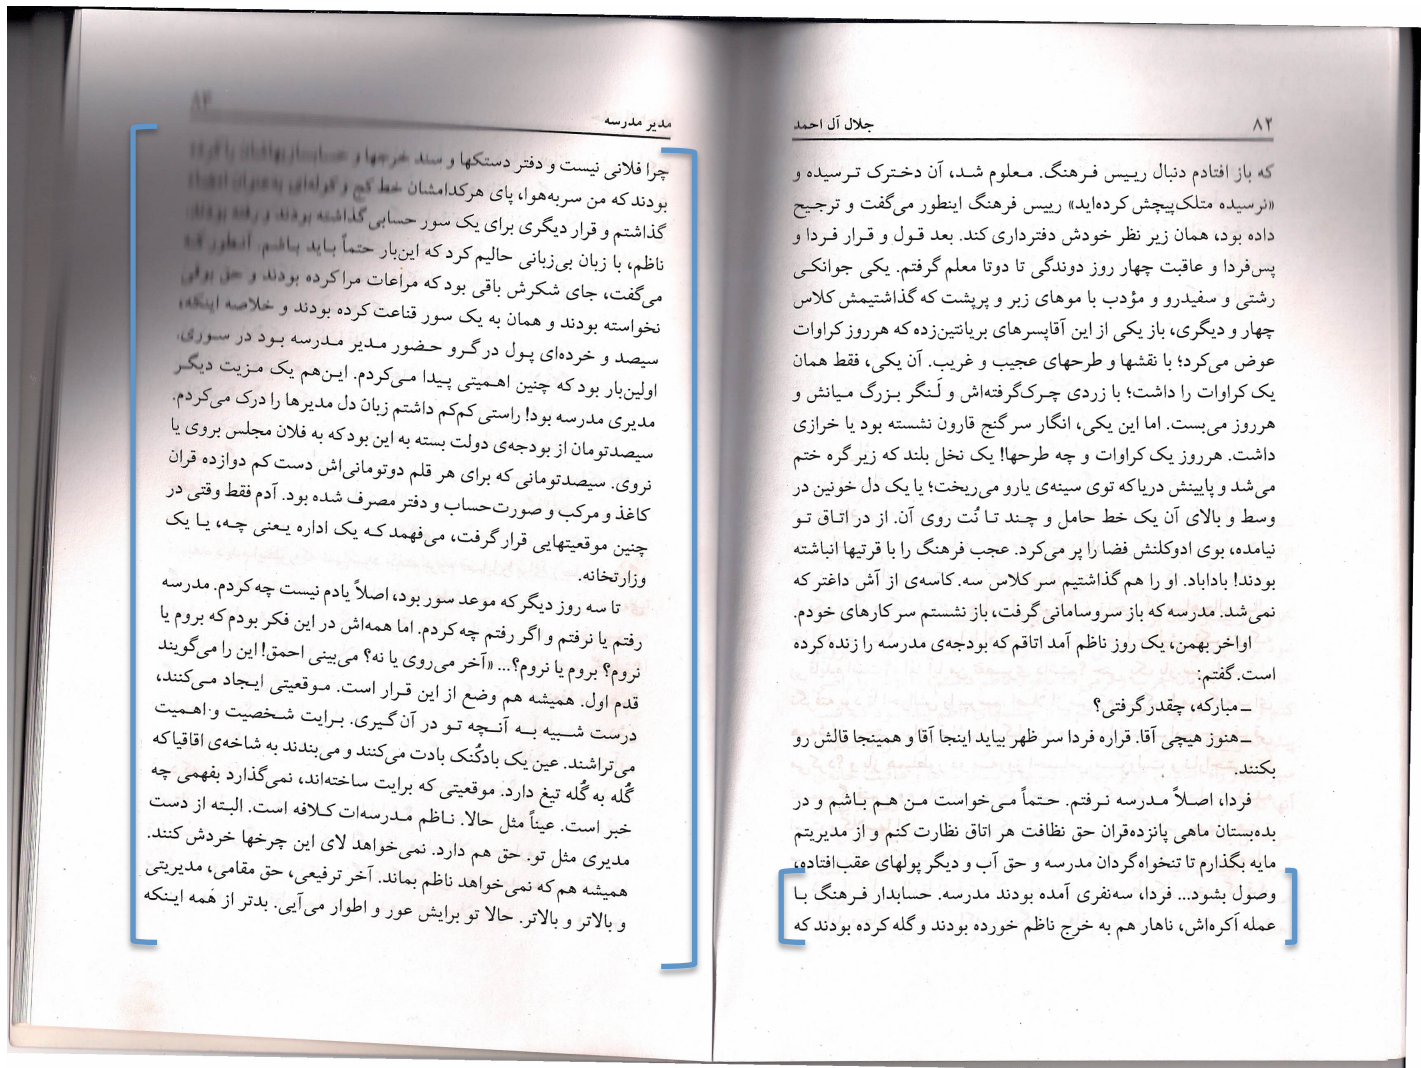 ۸۲
جلال آل احمد
که باز افتادم دنبال رییس فرهنگ. معلوم شد، آن دخترک ترسیده و
«نرسیده متلک‌پیچش کرده‌اید» رییس فرهنگ اینطور می‌گفت و ترجیح
داده بود، همان زیر نظر خودش دفترداری کند. بعد قول و قرار فردا و
پس‌فردا و عاقبت چهار روز دوندگی تا دوتا معلم گرفتم. یکی جوانکی
رشتی و سفیدرو و مؤدب با موهای زبر و پرپشت که گذاشتیمش کلاس
چهار و دیگری، باز یکی از این آقاپسرهای بریانتین‌زده که هرروز کراوات
عوض می‌کرد؛ با نقشها و طرحهای عجیب و غریب. آن یکی، فقط همان
یک کراوات را داشت؛ با زردی چرک‌گرفته‌اش و لَنگر بزرگ میانش و
هرروز می‌بست. اما این یکی، انگار سر گنج قارون نشسته بود یا خرازی
داشت. هرروز یک کراوات و چه طرحها! یک نخل بلند که زیر گره ختم
می‌شد و پایینش دریا که توی سینه‌ی یارو می‌ریخت؛ یا یک دل خونین در
وسط و بالای آن یک خط حامل و چند تا نُت روی آن. از در اتاق تو
نیامده، بوی ادوکلنش فضا را پر می‌کرد. عجب فرهنگ را با قرتیها انباشته
بودند! باداباد. او را هم گذاشتیم سر کلاس سه. کاسه‌ی از آش داغتر که
نمی‌شد. مدرسه که باز سروسامانی گرفت، باز نشستم سر کارهای خودم.
اواخر بهمن، یک روز ناظم آمد اتاقم که بودجه‌ی مدرسه را زنده کرده
است. گفتم:
ـ مبارکه، چقدر گرفتی؟
ـ هنوز هیچی آقا. قراره فردا سر ظهر بیاید اینجا آقا و همینجا قالش رو
بکنند.
فردا، اصلاً مدرسه نرفتم. حتماً می‌خواست من هم باشم و در
بده‌بستان ماهی پانزده‌قران حق نظافت هر اتاق نظارت کنم و از مدیریتم
مایه بگذارم تا تنخواه‌گردان مدرسه و حق آب و دیگر پولهای عقب‌افتاده،
وصول بشود... فردا، سه‌نفری آمده بودند مدرسه. حسابدار فرهنگ با
عمله اَکره‌اش، ناهار هم به خرج ناظم خورده بودند و گله کرده بودند که
مدیر مدرسه
۸۳
چرا فلانی نیست و دفتر دستکها و سند خرجها و حسابسازیهاشان را کرده
بودند که من سربه‌هوا، پای هرکدامشان خط کج و کوله‌ای به‌عنوان امضاء
گذاشتم و قرار دیگری برای یک سور حسابی گذاشته بودند و رفته بودند.
ناظم، با زبان بی‌زبانی حالیم کرد که این‌بار حتماً باید باشم. آنطور که
می‌گفت، جای شکرش باقی بود که مراعات مرا کرده بودند و حق بوقی
نخواسته بودند و همان به یک سور قناعت کرده بودند و خلاصه اینکه،
سیصد و خرده‌ای پول در گرو حضور مدیر مدرسه بود در سوری.
اولین‌بار بود که چنین اهمیتی پیدا می‌کردم. این‌هم یک مزیت دیگر
مدیری مدرسه بود! راستی کم‌کم داشتم زبان دل مدیرها را درک می‌کردم.
سیصدتومان از بودجه‌ی دولت بسته به این بود که به فلان مجلس بروی یا
نروی. سیصدتومانی که برای هر قلم دوتومانی‌اش دست‌کم دوازده قران
کاغذ و مرکب و صورت‌حساب و دفتر مصرف شده بود. آدم فقط وقتی در
چنین موقعیتهایی قرار گرفت، می‌فهمد که یک اداره یعنی چه، یا یک
وزارتخانه.
تا سه روز دیگر که موعد سور بود، اصلاً یادم نیست چه کردم. مدرسه
رفتم یا نرفتم و اگر رفتم چه کردم. اما همه‌اش در این فکر بودم که بروم یا
نروم؟ بروم یا نروم؟... «آخر می‌روی یا نه؟ می‌بینی احمق! این را می‌گویند
قدم اول. همیشه هم وضع از این قرار است. موقعیتی ایجاد می‌کنند،
درست شبیه به آنچه تو در آن گیری. برایت شخصیت و اهمیت
می‌تراشند. عین یک بادکُنک بادت می‌کنند و می‌بندند به شاخه‌ی اقاقیا که
گُله به گُله تیغ دارد. موقعیتی که برایت ساخته‌اند، نمی‌گذارد بفهمی چه
خبر است. عیناً مثل حالا. ناظم مدرسه‌ات کلافه است. البته از دست
مدیری مثل تو. حق هم دارد. نمی‌خواهد لای این چرخها خردش کنند.
همیشه هم که نمی‌خواهد ناظم بماند. آخر ترفیعی، حق مقامی، مدیریتی
و بالاتر و بالاتر. حالا تو برایش عور و اطوار می‌آیی. بدتر از همه اینکه